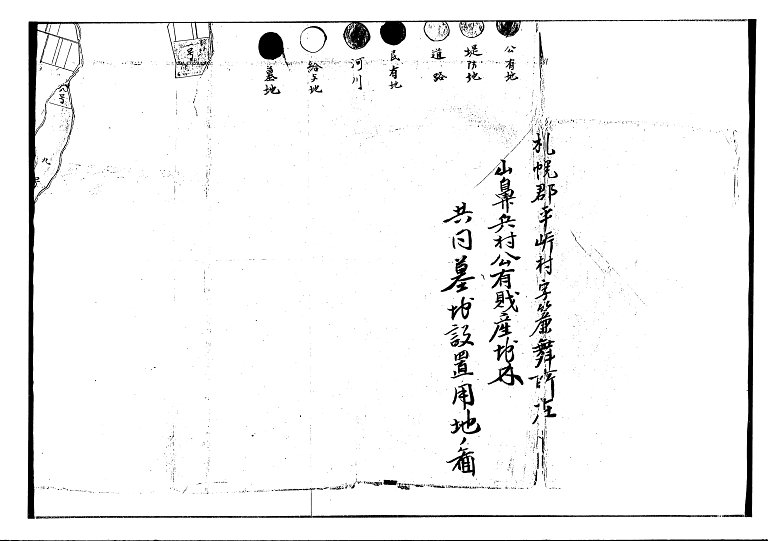 札幌郡平岸村字簾舞所在
山鼻兵村公有財産地内
共同墓地設置用地ノ図
公有地
堤防地
道路
民有地
河川
給与地
墓地
一号
八号
九号